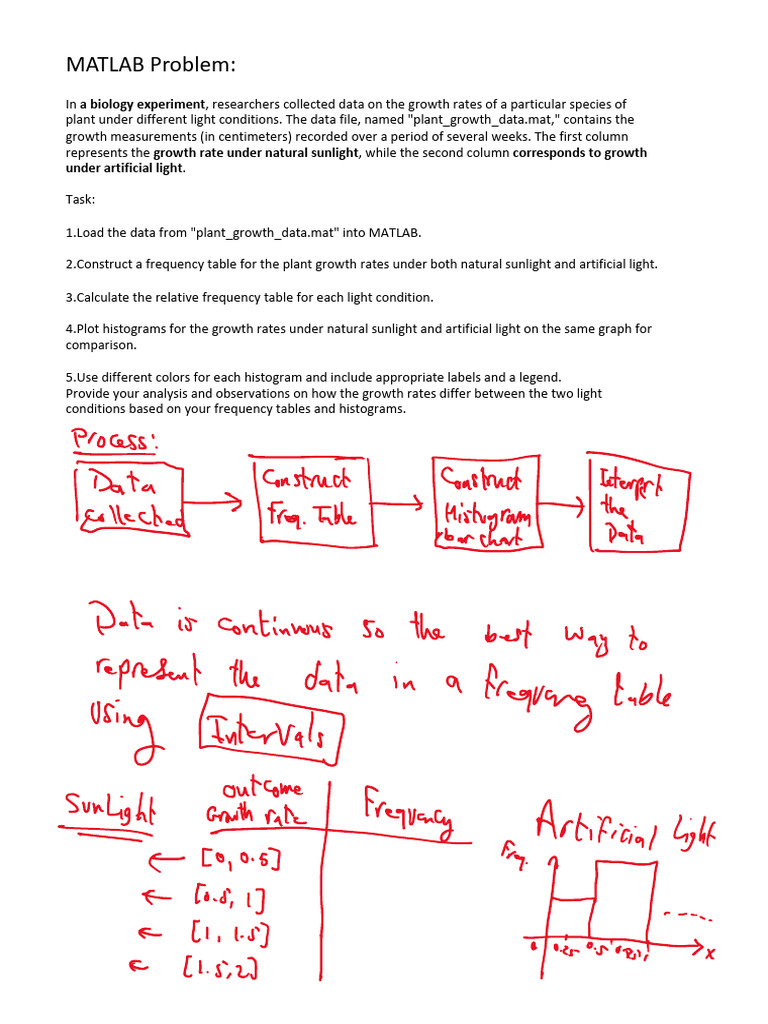 MATLAB Problem:
In a biology experiment, researchers collected data on the growth rates of a particular species of
plant under different light conditions. The data file, named "plant_growth_data.mat," contains the
growth measurements (in centimeters) recorded over a period of several weeks. The first column
represents the growth rate under natural sunlight, while the second column corresponds to growth
under artificial light.
Task:
1.Load the data from "plant_growth_data.mat" into MATLAB.
2.Construct a frequency table for the plant growth rates under both natural sunlight and artificial light.
3.Calculate the relative frequency table for each light condition.
4.Plot histograms for the growth rates under natural sunlight and artificial light on the same graph for
comparison.
5.Use different colors for each histogram and include appropriate labels and a legend.
Provide your analysis and observations on how the growth rates differ between the two light
conditions based on your frequency tables and histograms.
Process:
Data
collected
Construct
Freq. Table
Construct
Histogram
bar chart
Interpret
the
Data
Data is continuous so the best way to
represent the data in a frequency table
using Intervals
SunLight
outcome
Growth rate
Frequency
[0, 0.5]
[0.5, 1]
[1, 1.5]
[1.5, 2]
Artificial light
Freq.
0 0.25 0.5 0.75 1
x